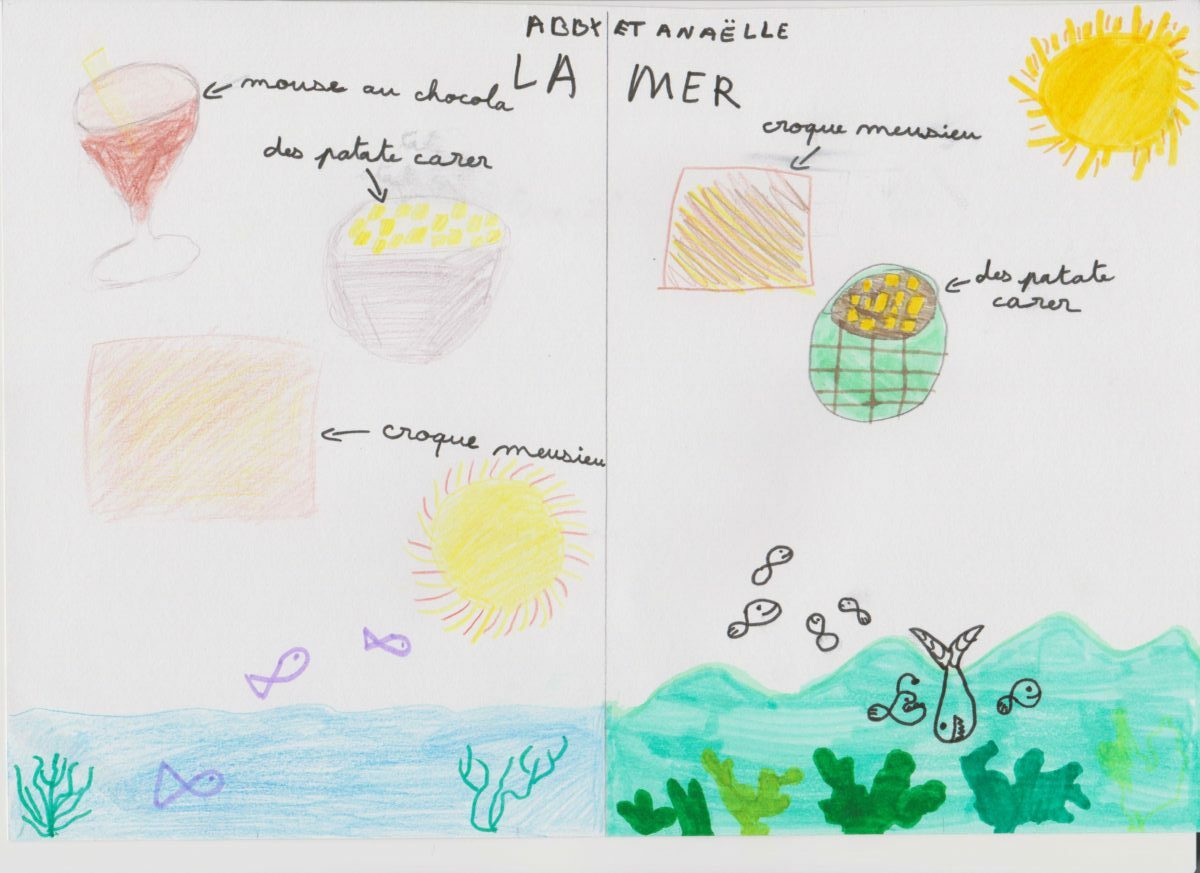 ABBY ET ANAËLLE
LA MER
mouse au chocola
des patate carer
croque meusieu
croque meusieu
des patate
carer